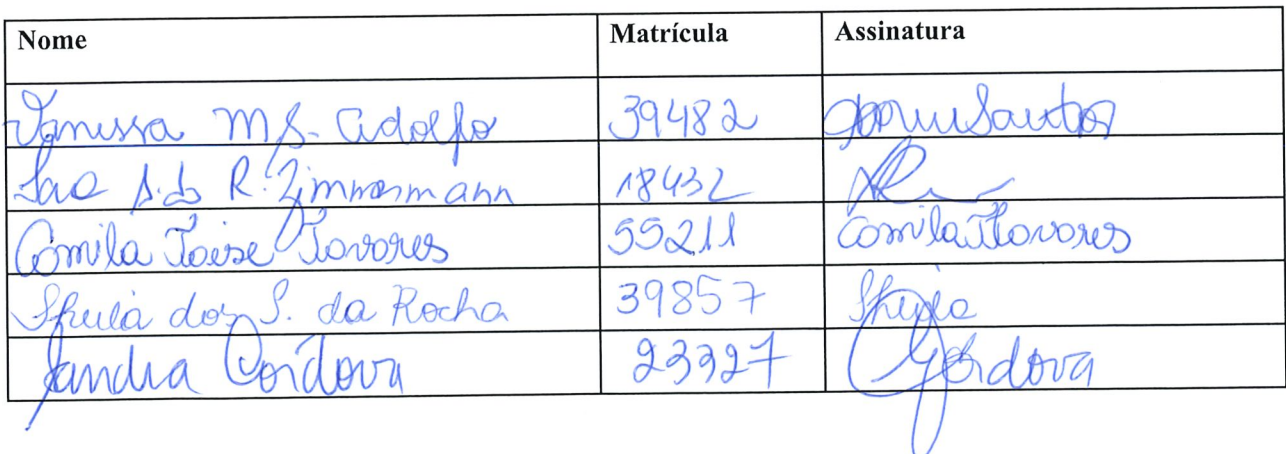 Nome Matrícula Assinatura
Vanussa M S. Adolfo 39482
S. do R. Zimmermann 18432
Camila Taise Tavares 55211 Camila Tavares
Sheila dos S. da Rocha 39857 Sheila
Sandra Cordova 23327 Cordova